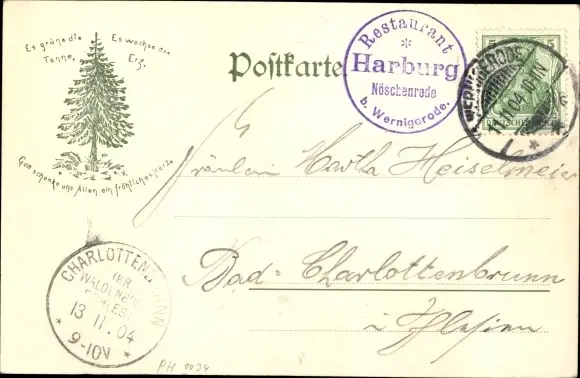 Es grüne die Tanne,
Es wachse das Erz,
Gott schenke uns Allen ein fröhliches Herz.
Postkarte
Restaurant
*
Harburg
Nöschenrode
b. Wernigerode.
WERNIGERODE
04.10-11N
5
5
Fräulein Martha Heiselmeier
Bad-Charlottenbrunn
i/Schlesien
CHARLOTTENBRUNN
(KR.
WALDENBURG
SCHLES)
13 11.04
* 9-10V *
PH 0034